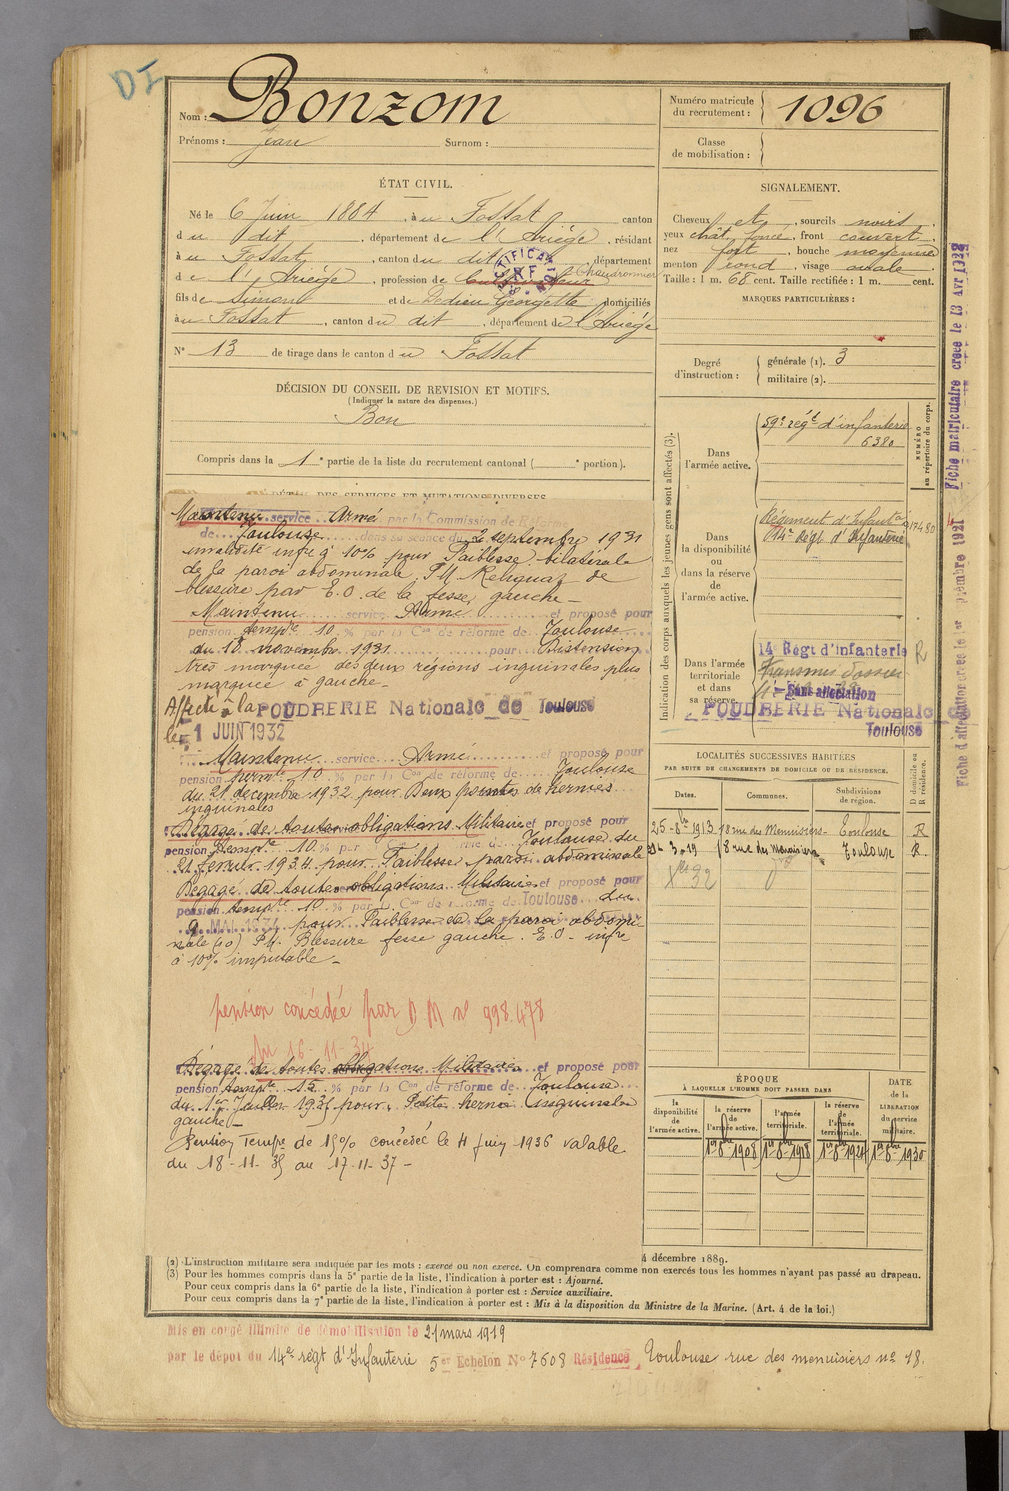 DI
Nom : Bonzom
Prénoms : Jean Surnom :
Numéro matricule du recrutement : 1096
Classe de mobilisation :
ÉTAT CIVIL.
Né le 6 Juin 1884, à u Fossat, canton
d u dit, département de l'Ariège, résidant
à u Fossat, canton du dit, département
d e l'Ariège, profession de Cultivateur Chaudronnier
RECTIFICATION RF
fils de Simon et de Dedieu Georgette, domiciliés
à u Fossat, canton du dit, département de l'Ariège
N° 13 de tirage dans le canton d u Fossat
SIGNALEMENT.
Cheveux et, sourcils noirs
yeux chât. foncé, front couvert
nez fort, bouche moyenne
menton rond, visage ovale.
Taille : 1 m. 68 cent. Taille rectifiée : 1 m. cent.
MARQUES PARTICULIÈRES :
Degré d'instruction : générale (1). 3
militaire (2).
DÉCISION DU CONSEIL DE REVISION ET MOTIFS.
(Indiquer la nature des dispenses.)
Bon
Compris dans la 1e partie de la liste du recrutement cantonal ( e portion).
DES SERVICES ET MUTATIONS DIVERSES
Maintenu service Armé par la Commission de Réforme
de Toulouse dans sa séance du 2 septembre 1931
invalidité infre à 10% pour Faiblesse bilatérale
de la paroi abdominale. P.M. Reliquat de
blessure par E.O. de la fesse gauche –
Maintenu service Armé et proposé pour
pension tempre 10 % par la Con de réforme de Toulouse
du 18 novembre 1931 pour Distension
très marquée des deux régions inguinales plus
marquée à gauche –
Affecté à la POUDRERIE Nationale de Toulouse
le 1 JUIN 1932
Maintenu service Armé et proposé pour
pension permte 10 % par la Con de réforme de Toulouse
du 21 décembre 1932 pour Deux pointes de hernies
inguinales
Dégagé de toutes obligations Militaires et proposé pour
pension tempre 10 % réforme de Toulouse du
21 février 1934 pour Faiblesse paroi abdominale
Dégagé de toutes obligations Militaires et proposé pour
pension tempre 10 % par la Con de réforme de Toulouse du
9 MAI 1934 pour Faiblesse de la paroi abdomi-
nale (10) P.M. Blessure fesse gauche. E.O – infre
à 10% imputable –
pension concédée par D M n° 998.478
du 16-11-34
Dégagé de toutes obligations Militaires et proposé pour
pension tempre 15 % par la Con de réforme de Toulouse
du 1er Juillet 1935 pour Petite hernie Inguinale
gauche –
Pension Tempre de 15% concédée le 4 Juin 1936 valable
du 18-11-35 au 17-11-37 –
Indication des corps auxquels les jeunes gens sont affectés (3).
NUMÉRO au répertoire du corps.
Dans l'armée active.
59e régt d'infanterie
6380
Dans la disponibilité ou dans la réserve de l'armée active.
Régiment d'Infante
14e Régt d'Infanterie
17480
Dans l'armée territoriale et dans sa réserve.
14 Régt d'infanterie R
Transmis dossier
Sans affectation
POUDRERIE Nationale de
Toulouse
Fiche matriculaire créée le 13 AVR 1928
LOCALITÉS SUCCESSIVES HABITÉES
PAR SUITE DE CHANGEMENTS DE DOMICILE OU DE RÉSIDENCE.
Dates. Communes. Subdivisions de région. D domicile ou R résidence.
25-8bre 1913 18 rue du Menuisiers - Toulouse R
21-3-19 18 rue du Menuisiers Toulouse R.
Xbre 32
ÉPOQUE
À LAQUELLE L'HOMME DOIT PASSER DANS
DATE de la LIBERATION du service militaire.
la disponibilité de l'armée active.
la réserve de l'armée active.
l'armée territoriale.
la réserve de l'armée territoriale.
1er 8bre 1908 1er 8bre 1918 1er 8bre 1924 1er 8bre 1930
4 décembre 1889.
(2) L'instruction militaire sera indiquée par les mots : exercé ou non exercé. On comprendra comme non exercés tous les hommes n'ayant pas passé au drapeau.
(3) Pour les hommes compris dans la 5e partie de la liste, l'indication à porter est : Ajourné.
Pour ceux compris dans la 6e partie de la liste, l'indication à porter est : Service auxiliaire.
Pour ceux compris dans la 7e partie de la liste, l'indication à porter est : Mis à la disposition du Ministre de la Marine. (Art. 4 de la loi.)
Mis en congé illimité de démobilisation le 21 mars 1919
par le dépôt du 14e régt d'Infanterie 5er Echelon N° 7608 Résidence Toulouse rue des menuisiers n° 18.